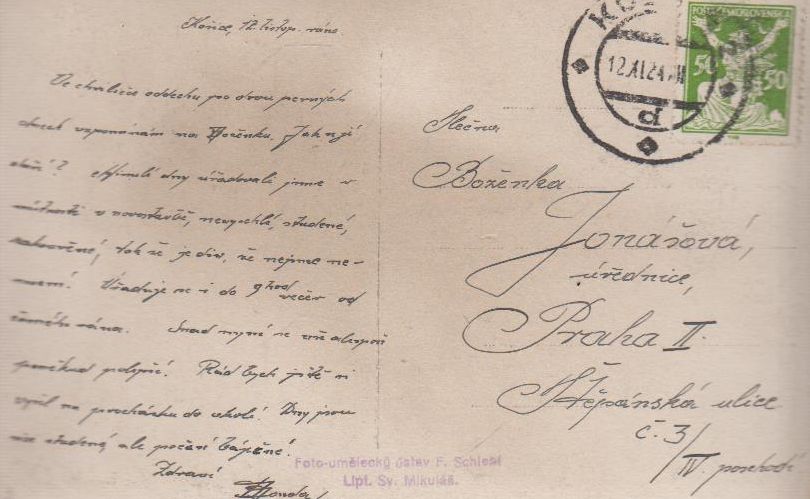 Košice, 12. listop. ráno.
Ve chvilce oddechu po dvou perných
dnech vzpomínám na Boženku. Jak se jí
daří? Minulé dny úřadovali jsme v
místnosti v novostavbě, nevyschlé, studené,
tak že je div, že nejsme ne-
mocni! Úřaduje se i do 9 hod večer od
rána. Snad nyní se vše alespoň
poněkud polepší! Rád bych ještě si
vyšel na procházku do okolí! Dny jsou
sice studené, ale počasí báječné!
Zdraví
Slečna
Boženka
Jonášová,
úřednice,
Praha II.
Štěpánská ulice
č. 3/
IV. poschodí
Foto-umělecký ústav F. Schiestl
Lipt. Sv. Mikuláš.
KOŠ
12.XI.24
d
POŠTA ČESKOSLOVENSKÁ
50 50